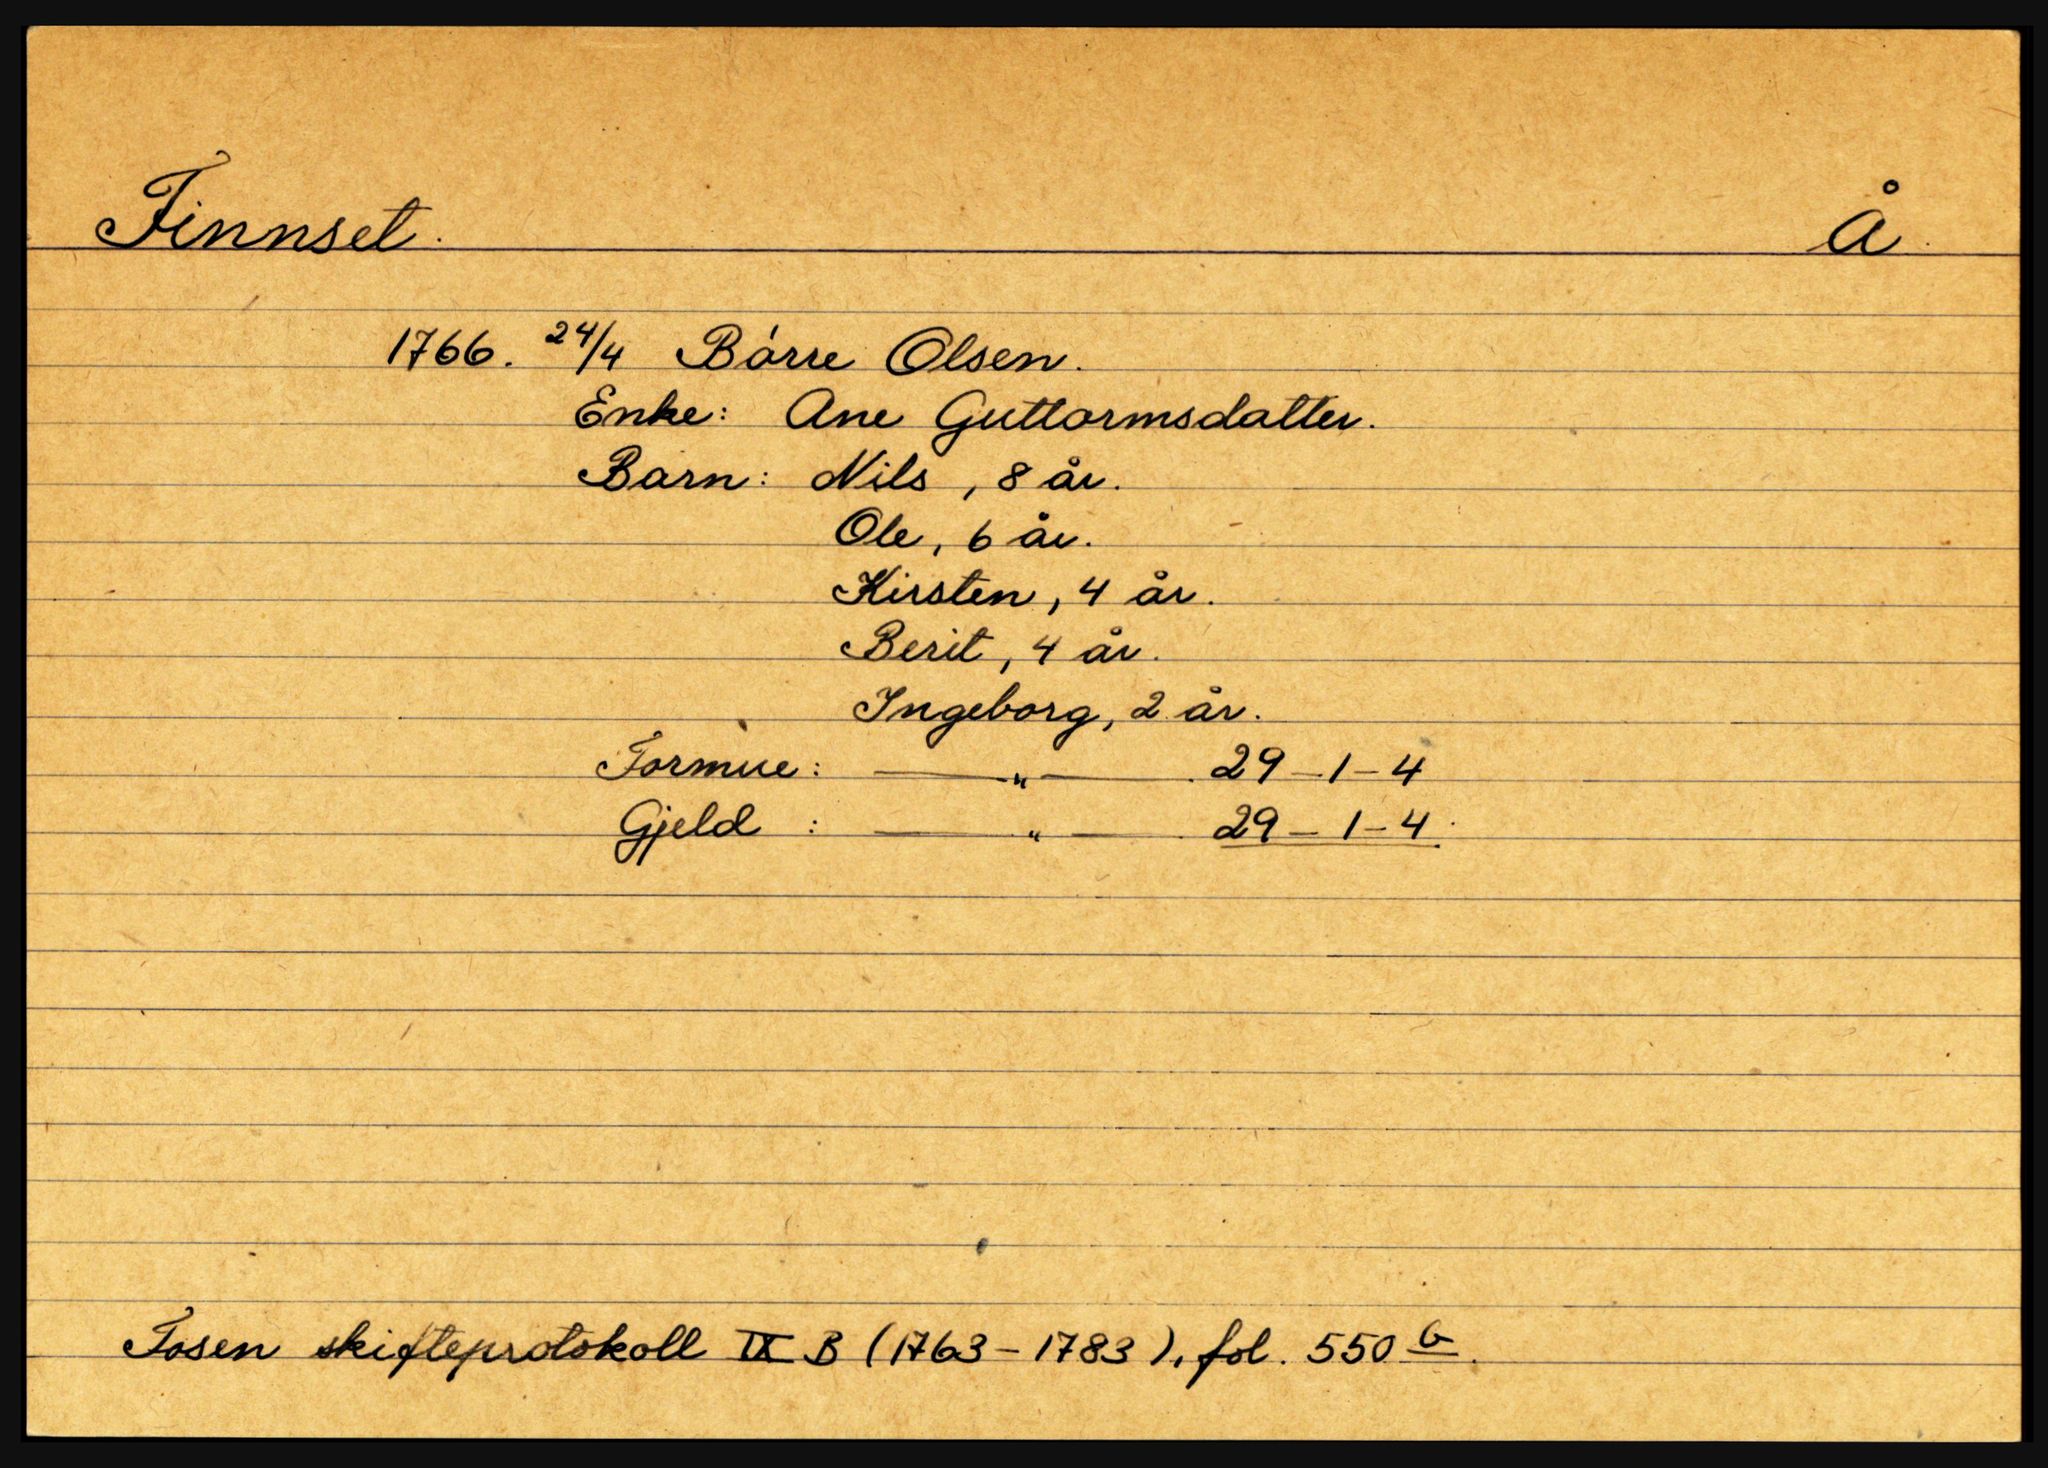 Finnset. Å.
1766. 24/4 Børre Olsen.
Enke: Ane Guttormsdatter.
Barn: Nils, 8 år.
Ole, 6 år.
Kirsten, 4 år.
Berit, 4 år.
Ingeborg, 2 år.
Formue: — " — 29 - 1 - 4
Gjeld : — " — 29 - 1 - 4.
Fosen skifteprotokoll IX B (1763 - 1783), fol. 550 b.